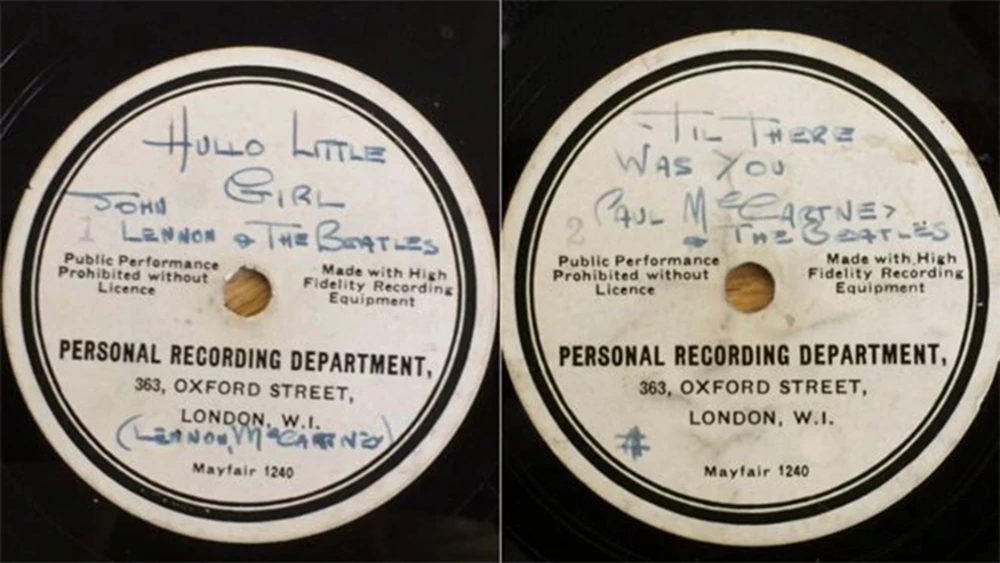 HULLO LITTLE
GIRL
JOHN
1 LENNON & THE BEATLES
Public Performance
Prohibited without
Licence
Made with High
Fidelity Recording
Equipment
PERSONAL RECORDING DEPARTMENT,
363, OXFORD STREET,
LONDON, W.I.
(LENNON, McCARTNEY)
Mayfair 1240
'TIL THERE
WAS YOU
2 PAUL McCARTNEY
& THE BEATLES
Public Performance
Prohibited without
Licence
Made with High
Fidelity Recording
Equipment
PERSONAL RECORDING DEPARTMENT,
363, OXFORD STREET,
LONDON, W.I.
#
Mayfair 1240